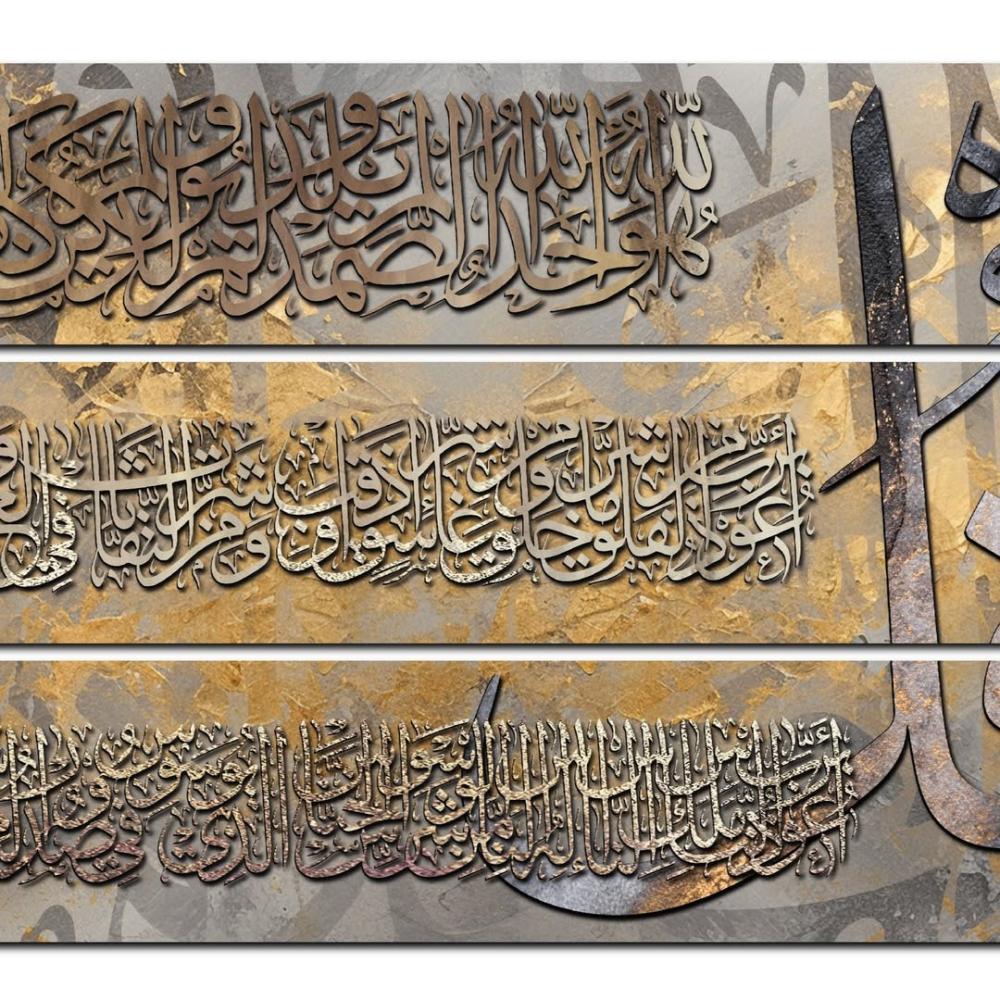 هو الله أحد الله الصمد لم يلد ولم يولد ولم يكن
أعوذ برب الفلق من شر ما خلق ومن شر غاسق إذا وقب ومن شر النفاثات في
أعوذ برب الناس ملك الناس إله الناس من شر الوسواس الخناس الذي يوسوس في صدور
قل